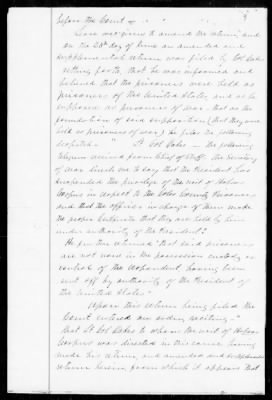 before the Court —
Leave was given to amend the return, and
on the 28th day of June an amended and
supplemental return was filed by Col Oakes
setting forth, that he was informed and
believed that the prisoners were held as
prisoners of the United States, and as he
supposed as prisoners of war — that as the
foundation of said supposition (that they were
held as prisoners of war) he files the following
despatch — "Lt Col Oakes — the following
telegram received from Chief of Staff. The Secretary
of war directs me to say that the President has
suspended the privilege of the writ of Habeas
Corpus in respect to the Coles County Prisoners
and that the officer in charge of them made
the proper Certificate that they are held by him
under authority of the President."
He further returned "that said prisoners
are not now in the possession custody or
control of the respondent having been
sent off by authority of the President of
the United States"
Upon this return being filed the
Court entered an order reciting —
"that Lt Col Oakes to whom the writ of Habeas
Corpus was directed in this cause having
made his return, and amended and supplemental
return herein from which it appears that